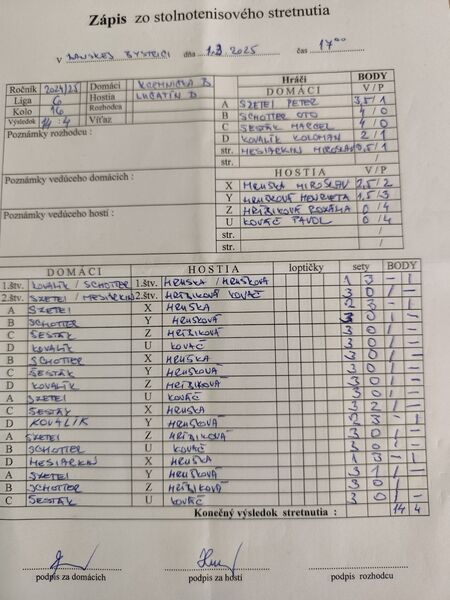 Zápis zo stolnotenisového stretnutia
v BANSKEJ BYSTRICI dňa 1.3.2025 čas 17⁰⁰
Ročník 2024/25 Domáci KREMNIČKA B
Liga 6 Hostia LUČATÍN D
Kolo 16 Rozhodca
Výsledok 14 : 4 Víťaz
Poznámky rozhodcu :
Poznámky vedúceho domácich :
Poznámky vedúceho hostí :
Hráči BODY
DOMÁCI V/P
A SZETEI PETER 3,5/1
B SCHOTTER OTO 4/0
C ŠESTÁK MARCEL 4/0
D KOVALÍK KOLOMAN 2/1
str. MESIARKIN MIROSLAV 0,5/1
str. /
HOSTIA V/P
X HRUŠKA MIROSLAV 2,5/2
Y HRUŠKOVÁ HENRIETA 1,5/3
Z HRÍBIKOVÁ ROZÁLIA 0/4
U KOVÁČ PAVOL 0/4
str.
str.
DOMÁCI HOSTIA loptičky sety BODY
1.štv. KOVALÍK / SCHOTTER 1.štv. HRUŠKA / HRUŠKOVÁ 1 3 – 1
2.štv. SZETEI / MESIARKIN 2.štv. HRÍBIKOVÁ KOVÁČ 3 0 1 –
A SZETEI X HRUŠKA 2 3 – 1
B SCHOTTER Y HRUŠKOVÁ 3 0 1 –
C ŠESTÁK Z HRÍBIKOVÁ 3 0 1 –
D KOVALÍK U KOVÁČ 3 0 1 –
B SCHOTTER X HRUŠKA 3 0 1 –
C ŠESTÁK Y HRUŠKOVÁ 3 0 1 –
D KOVALÍK Z HRÍBIKOVÁ 3 0 1 –
A SZETEI U KOVÁČ 3 0 1 –
C ŠESTÁK X HRUŠKA 3 2 1 –
D KOVALÍK Y HRUŠKOVÁ 2 3 – 1
A SZETEI Z HRÍBIKOVÁ 3 0 1 –
B SCHOTTER U KOVÁČ 3 0 1 –
D MESIARKIN X HRUŠKA 1 3 – 1
A SZETEI Y HRUŠKOVÁ 3 1 1 –
B SCHOTTER Z HRÍBIKOVÁ 3 0 1
C ŠESTÁK U KOVÁČ 3 0 1 –
Konečný výsledok stretnutia : 14 4
podpis za domácich podpis za hostí podpis rozhodcu